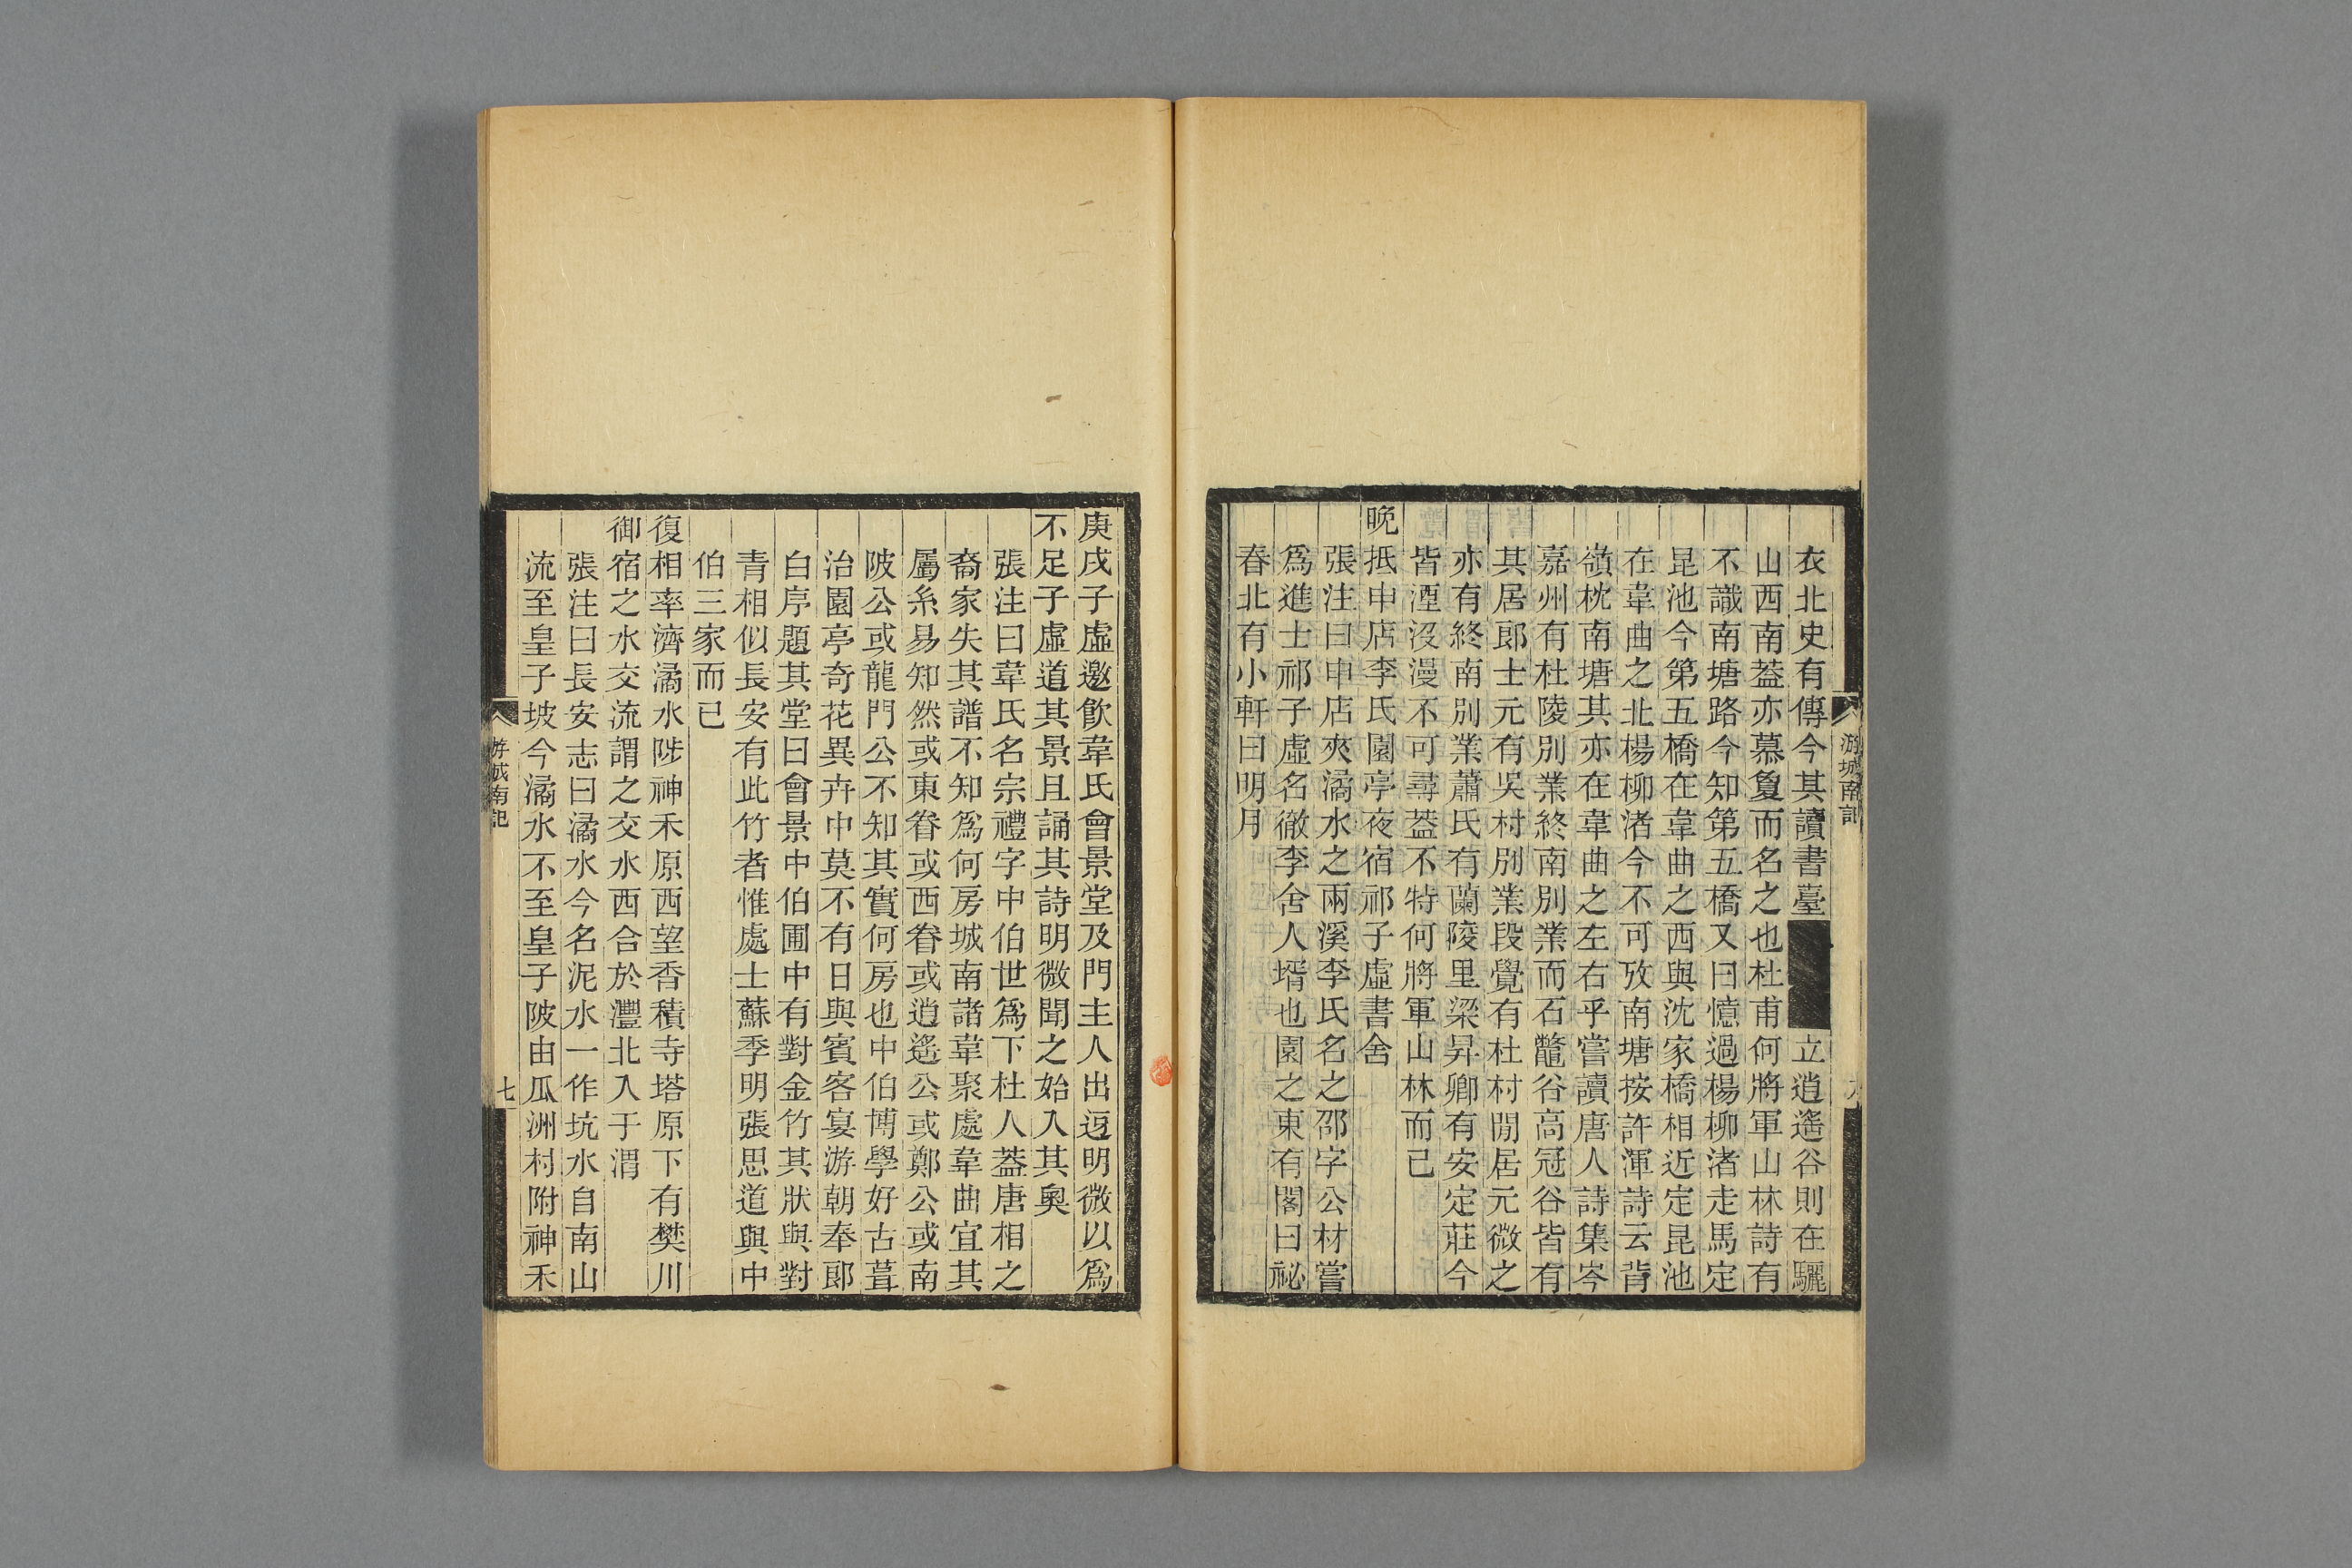 衣北史有傳今其讀書臺■立逍遙谷則在驪
山西南葢亦慕敻而名之也杜甫何將軍山林詩有
不識南塘路今知第五橋又曰憶過楊柳渚走馬定
昆池今第五橋在韋曲之西與沈家橋相近定昆池
在韋曲之北楊柳渚今不可攷南塘按許渾詩云背
嶺枕南塘其亦在韋曲之左右乎嘗讀唐人詩集岑
嘉州有杜陵別業終南別業而石鼈谷高冠谷皆有
其居郎士元有吳村別業段覺有杜村閒居元微之
亦有終南別業蕭氏有蘭陵里梁昇卿有安定莊今
皆湮沒漫不可尋葢不特何將軍山林而已
晚抵申店李氏園亭夜宿祁子虛書舍
張注曰申店夾潏水之兩溪李氏名之邵字公材嘗
爲進士祁子虛名徹李舍人壻也園之東有閣曰祕
春北有小軒曰明月
游城南記
庚戌子虛邀飮韋氏會景堂及門主人出迓明微以爲
不足子虛道其景且誦其詩明微聞之始入其奧
張注曰韋氏名宗禮字中伯世爲下杜人葢唐相之
裔家失其譜不知爲何房城南諸韋聚處韋曲宜其
屬糸易知然或東眷或西眷或逍遙公或鄭公或南
陂公或龍門公不知其實何房也中伯博學好古葺
治園亭奇花異卉中莫不有日與賓客宴游朝奉郎
白序題其堂曰會景中伯圃中有對金竹其狀與對
青相似長安有此竹者惟處士蘇季明張思道與中
伯三家而已
復相率濟潏水陟神禾原西望香積寺塔原下有樊川
御宿之水交流謂之交水西合於灃北入于渭
張注曰長安志曰潏水今名泥水一作坑水自南山
流至皇子坡今潏水不至皇子陂由瓜洲村附神禾
游城南記
七